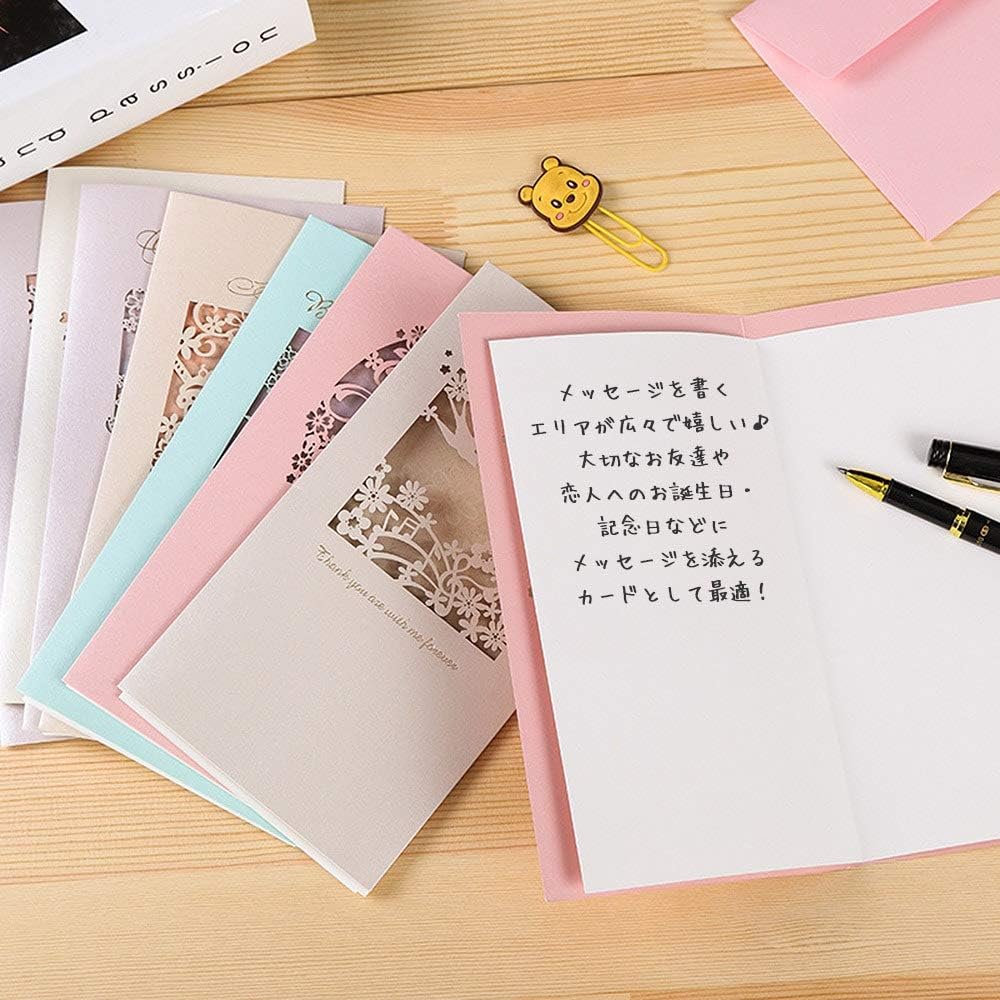 メッセージを書く
エリアが広々で嬉しい♪
大切なお友達や
恋人へのお誕生日・
記念日などに
メッセージを添える
カードとして最適！
Thank you are with me forever
passion